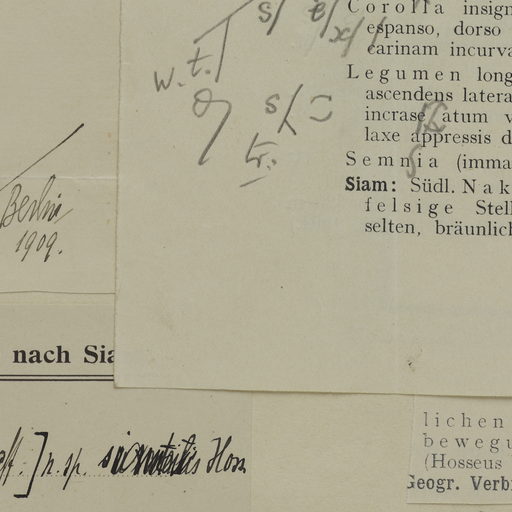 Corolla insign
espanso, dorso
carinam incurva
Legumen long
ascendens latera
incrassatum v
laxe appressis d
Semnia (imma
Siam: Südl. Nak
felsige Stell
selten, bräunlich
w. t.
s/
tr.
Berlin
1909.
nach Sia
n. sp. Hoss
lichen
bewegu
(Hosseus
Geogr. Verbr